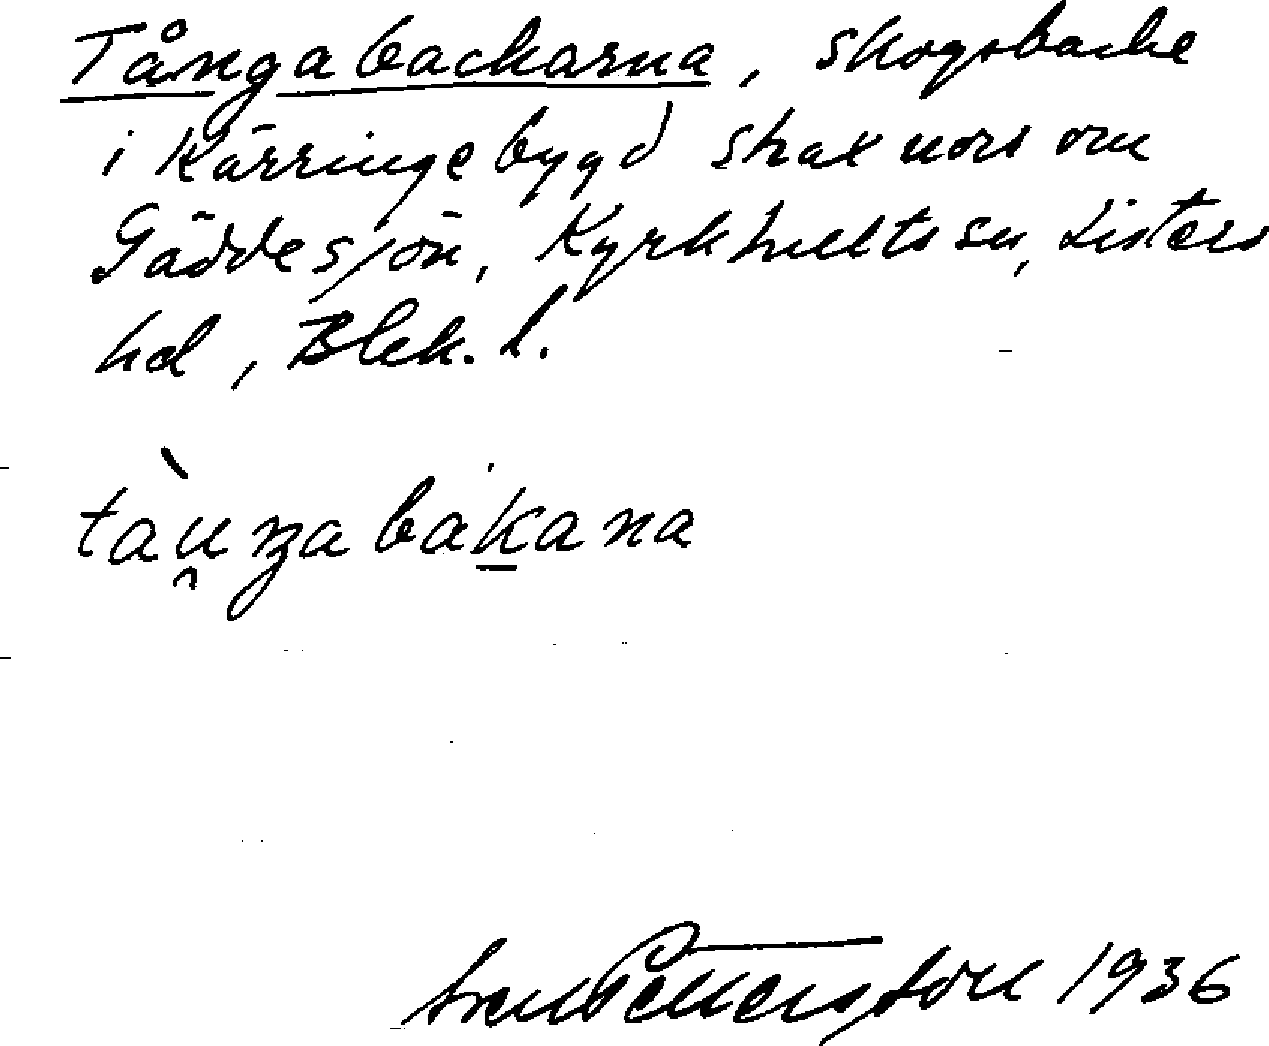 Tångabackarna, skogsbacke
i Kärringebygd strax norr om
Gäddesjön, Kyrkhults sn, Listers
hd, Blek. l.
tàu̯ŋabakana
Sven Pettersson 1936